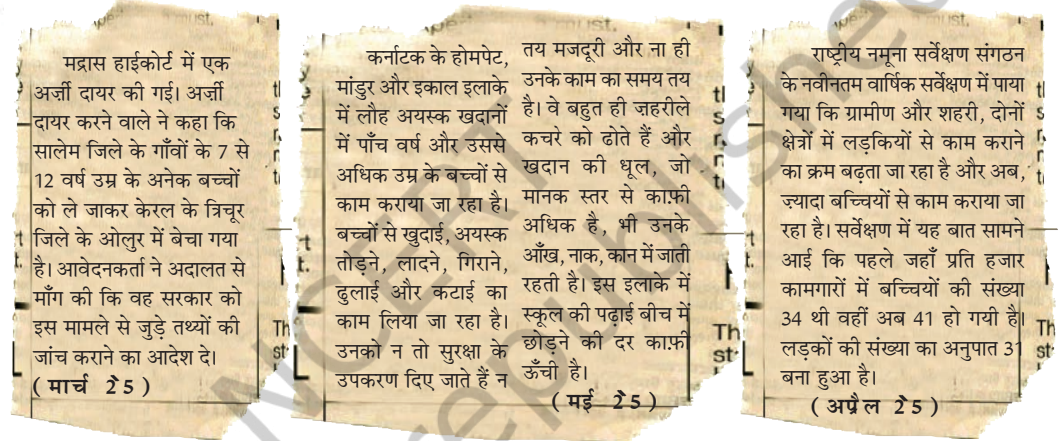 मद्रास हाईकोर्ट में एक
अर्ज़ी दायर की गई। अर्ज़ी
दायर करने वाले ने कहा कि
सालेम जिले के गाँवों के 7 से
12 वर्ष उम्र के अनेक बच्चों
को ले जाकर केरल के त्रिचूर
जिले के ओलुर में बेचा गया
है। आवेदनकर्ता ने अदालत से
माँग की कि वह सरकार को
इस मामले से जुड़े तथ्यों की
जांच कराने का आदेश दे।
( मार्च 25)
कर्नाटक के होमपेट,
मांडुर और इकाल इलाके
में लौह अयस्क खदानों
में पाँच वर्ष और उससे
अधिक उम्र के बच्चों से
काम कराया जा रहा है।
बच्चों से खुदाई, अयस्क
तोड़ने, लादने, गिराने,
ढुलाई और कटाई का
काम लिया जा रहा है।
उनको न तो सुरक्षा के
उपकरण दिए जाते हैं न
तय मजदूरी और ना ही
उनके काम का समय तय
है। वे बहुत ही ज़हरीले
कचरे को ढोते हैं और
खदान की धूल, जो
मानक स्तर से काफ़ी
अधिक है, भी उनके
आँख, नाक, कान में जाती
रहती है। इस इलाके में
स्कूल की पढ़ाई बीच में
छोड़ने की दर काफ़ी
ऊँची है।
( मई 25)
राष्ट्रीय नमूना सर्वेक्षण संगठन
के नवीनतम वार्षिक सर्वेक्षण में पाया
गया कि ग्रामीण और शहरी, दोनों
क्षेत्रों में लड़कियों से काम कराने
का क्रम बढ़ता जा रहा है और अब,
ज़्यादा बच्चियों से काम कराया जा
रहा है। सर्वेक्षण में यह बात सामने
आई कि पहले जहाँ प्रति हजार
कामगारों में बच्चियों की संख्या
34 थी वहीं अब 41 हो गयी है।
लड़कों की संख्या का अनुपात 31
बना हुआ है।
( अप्रैल 25)
NCERT
republished